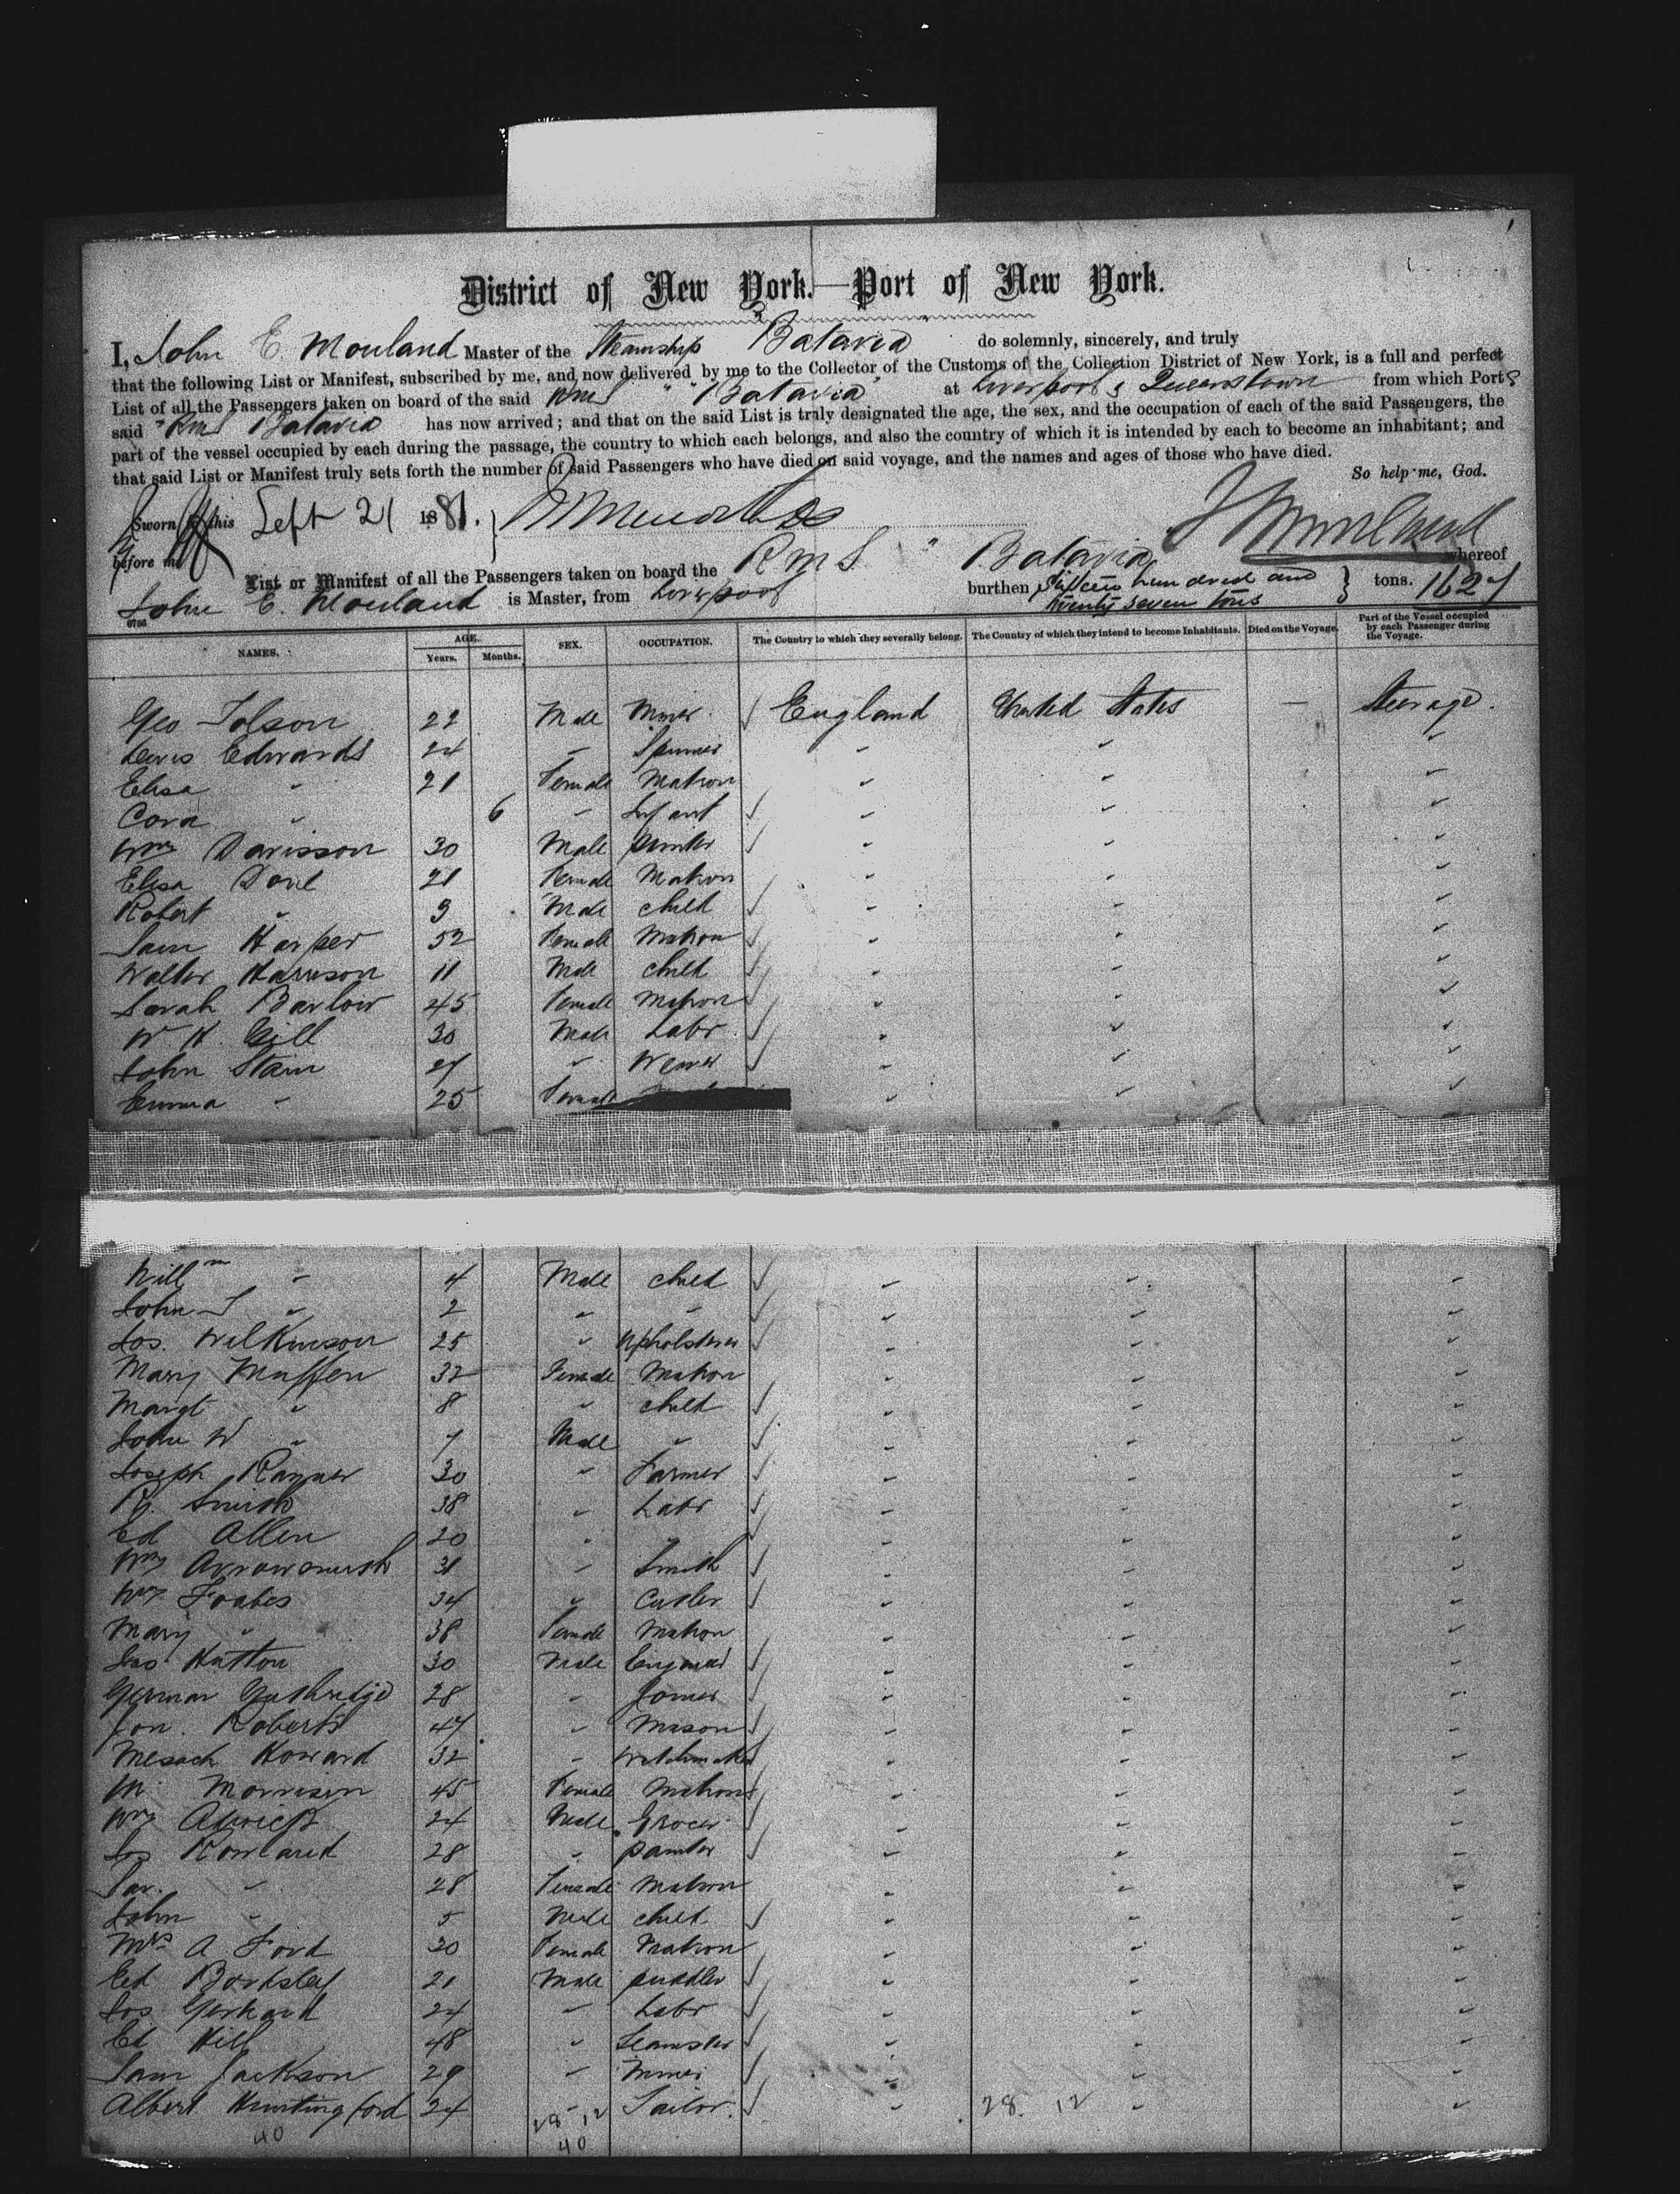 1
District of New York.—Port of New York.
I, John E. Mouland Master of the Steamship Batavia do solemnly, sincerely, and truly
that the following List or Manifest, subscribed by me, and now delivered by me to the Collector of the Customs of the Collection District of New York, is a full and perfect
List of all the Passengers taken on board of the said RMS "Batavia" at Liverpool & Queenstown from which Ports
said "RMS Batavia has now arrived; and that on the said List is truly designated the age, the sex, and the occupation of each of the said Passengers, the
part of the vessel occupied by each during the passage, the country to which each belongs, and also the country of which it is intended by each to become an inhabitant; and
that said List or Manifest truly sets forth the number of said Passengers who have died on said voyage, and the names and ages of those who have died.
So help me, God.
Sworn to this Sept 21 1881.
before me
List or Manifest of all the Passengers taken on board the RMS " Batavia whereof
John E. Mouland is Master, from Liverpool burthen Sixteen hundred and twenty seven tons } tons. 1627
6766
NAMES. AGE. Years. Months. SEX. OCCUPATION. The Country to which they severally belong. The Country of which they intend to become Inhabitants. Died on the Voyage. Part of the Vessel occupied by each Passenger during the Voyage.
Geo Tolson 22 Male Miner England United States — Steerage.
Lewis Edwards 24 " Spinner " " "
Elisa " 21 Female Matron " " "
Cora " 6 " Infant " " "
Wm Davisson 30 Male " " "
Elisa 21 Female Matron " " "
Robert " 9 Male child " " "
Sam Harper 52 Female Matron " " "
Walter Harrison 11 Male child " " "
Sarah Barlow 45 Female Matron " " "
W. H. Gill 30 Male Labr " " "
John Stain 27 " Weaver " " "
Emma " 25 Female " " "
Willm " 4 Male child " " "
John T " 2 " " " " "
Jos. Wilkinson 25 " Upholsterer " " "
Mary Maffen 32 Female Matron " " "
Margt " 8 " child " " "
John W " 7 Male " " " "
Joseph Rayner 30 " Farmer " " "
R. Smith 38 " Labr " " "
Ed Allen 20 " " " " "
Wm Arrowsmith 31 " Smith " " "
Wm Foabes 34 " Cutler " " "
Mary " 38 Female Matron " " "
Jas Hutton 30 Male Engineer " " "
German 28 " Joiner " " "
Jon. Roberts 47 " Mason " " "
Mesach Howard 32 " Watchmaker " " "
M. Morrison 45 Female Matron " " "
Wm 24 Male Grocer " " "
Jos Rowland 28 " painter " " "
Sar. " 28 Female Matron " " "
John " 5 Male child " " "
Mrs A Ford 30 Female Matron " " "
Ed Bardsley 21 Male puddler " " "
Jos Gerhard 24 " Labr " " "
Ed Hill 48 " Teamster " " "
Sam Jackson 29 " Miner " " "
Albert Huntingford 24 " Tailor. " " "
40 28 12 28. 12
40